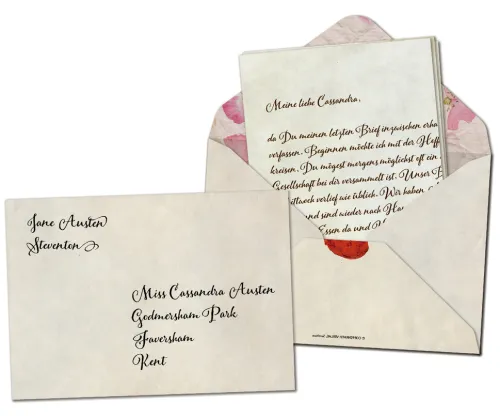 Jane Austen
Steventon
Miss Cassandra Austen
Godmersham Park
Faversham
Kent
Meine liebe Cassandra,
da Du meinen letzten Brief inzwischen erha
verfassen. Beginnen möchte ich mit der Hoff
kreisen. Du mögest morgens möglichst oft ein
Gesellschaft bei dir versammelt ist. Unser B
ittwoch verlief wie üblich. Wir haben
und sind wieder nach Ha
Essen da und